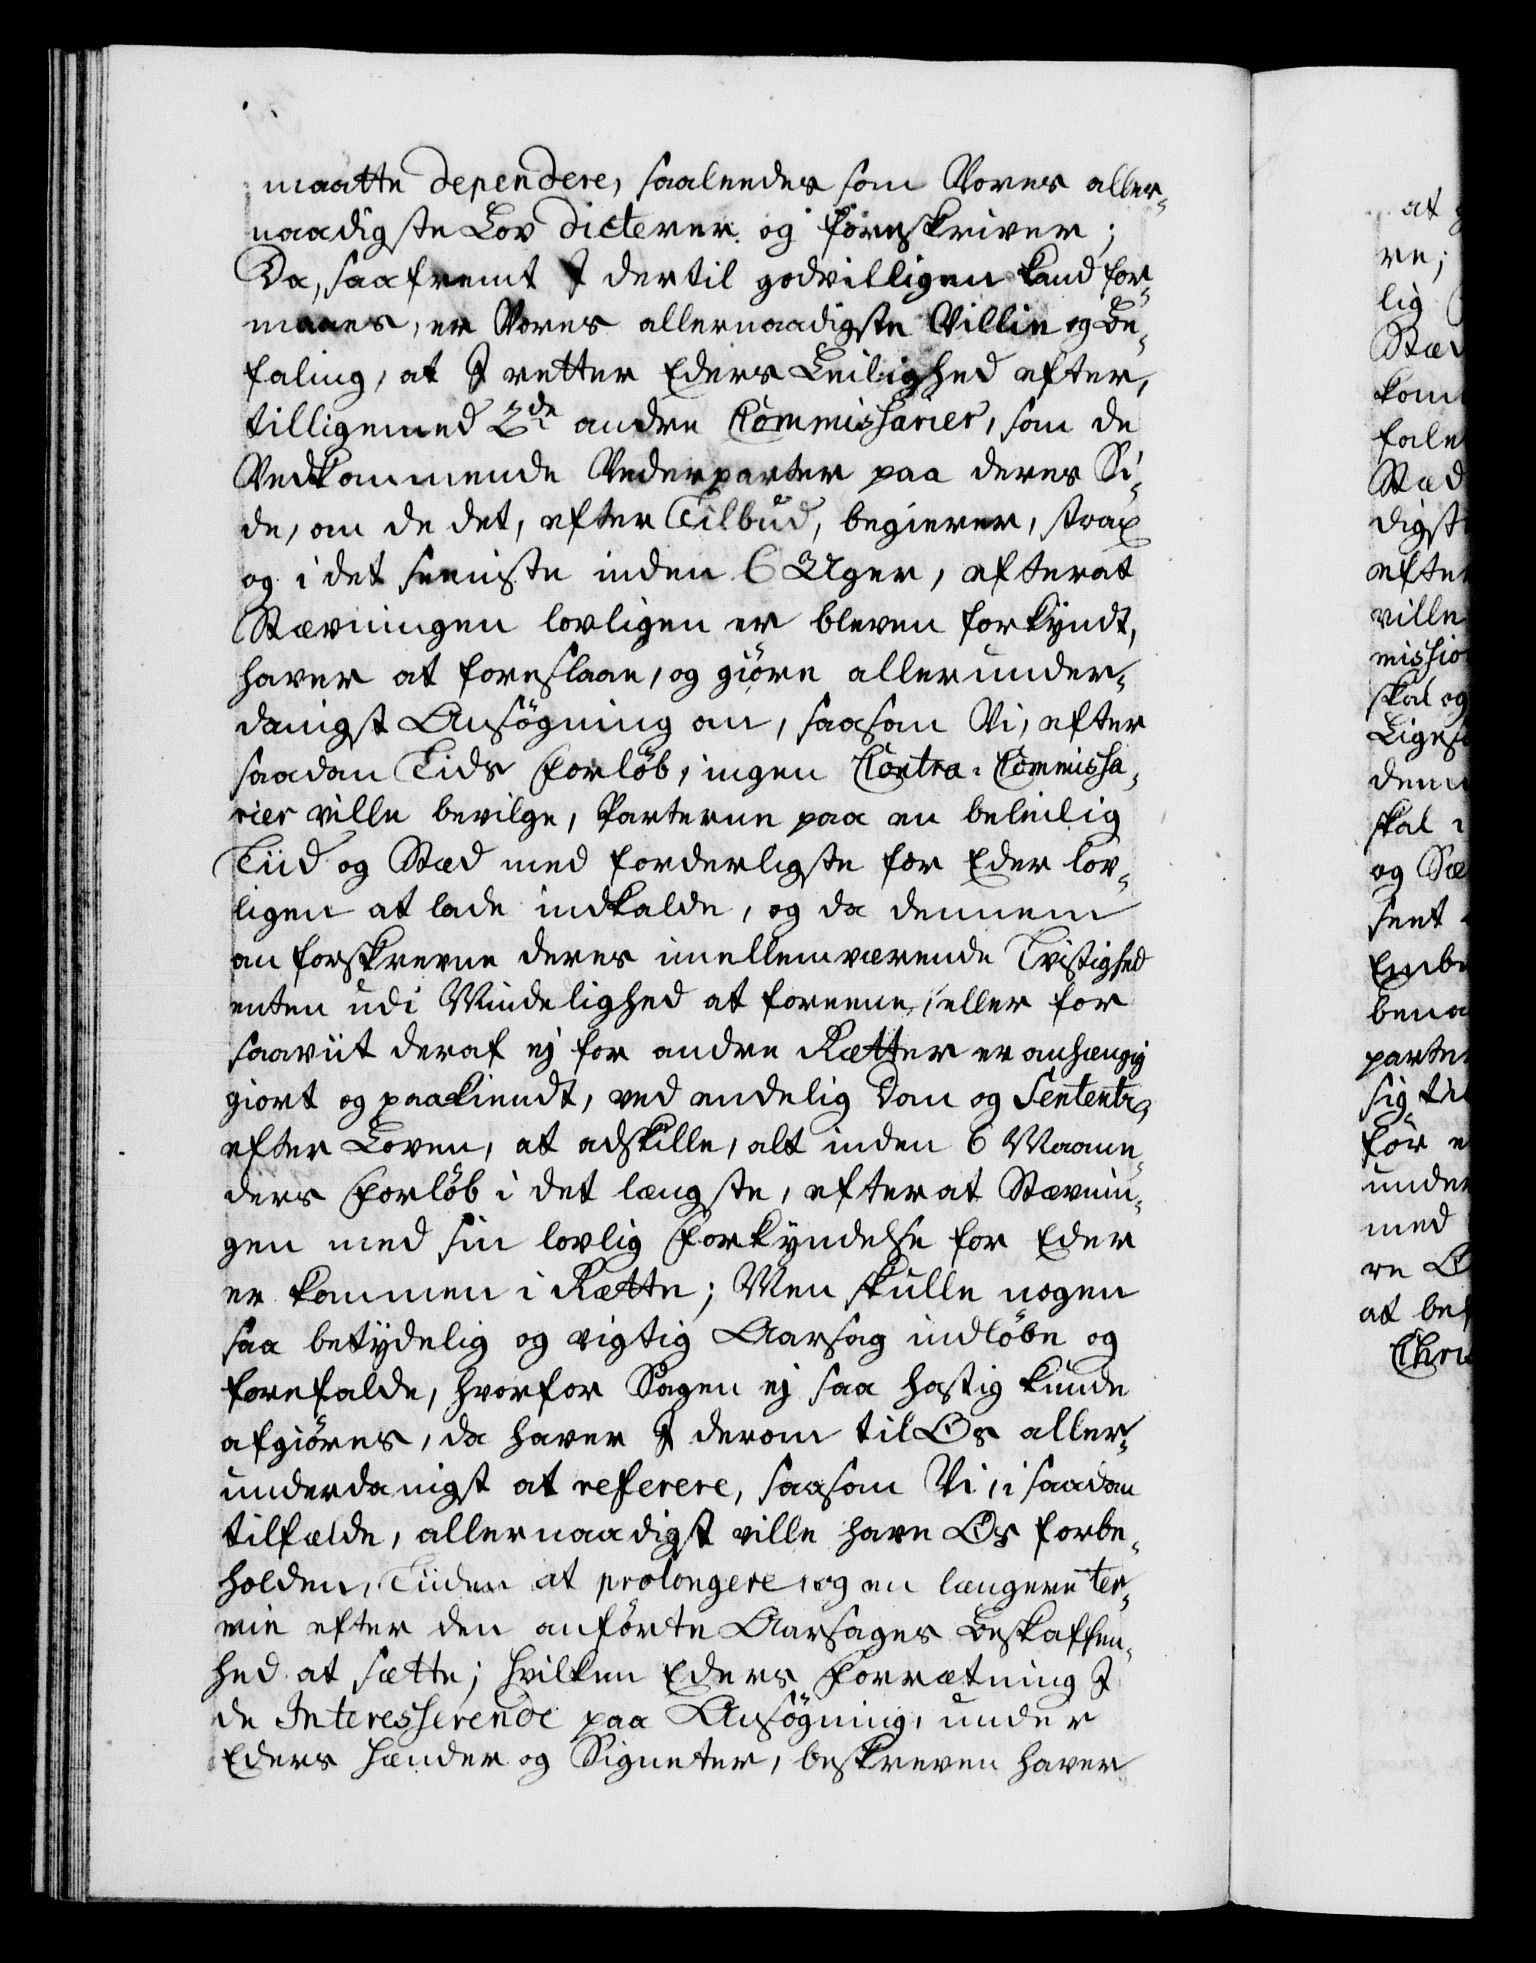 maatte dependere, saaleedes som Vores aller-
naadigste Lov dicterer og foreskriver;
Da, saafremt I dertil godvilligen kand for-
maaes, er Vores allernaadigste Villie og Be-
faling, at I retter Eders Leilighed efter,
tilligemed 2de andre Commissarier, som de
Vedkommende Vederparter paa deres Si-
de, om de det, efter Tilbud, begierer, strax
og i det seeniste inden 6 Uger, efterat
Stævningen lovligen er bleven forkyndt,
haver at foreslaae, og giøre allerunder-
danigst Ansøgning om, saasom Vi, efter
saadan Tids Forløb, ingen Contra-Commissa-
rier ville bevilge, Parterne paa en beleilig
Tiid og Stæd med forderligste for Eder lov-
ligen at lade indkalde, og da dennem
om forskrevne deres imellemværende Tvistighed
enten udi Mindelighed at foreene, eller for
saaviit deraf ej for andre Rætter er anhængig
giort og paakiendt, ved endelig Dom og Sententz,
efter Loven, at adskille, alt inden 6 Maane-
ders Forløb i det længste, efterat Stævnin-
gen med sin lovlig Forkyndelse for Eder
er kommen i Rætte; Men skulle nogen
saa betydelig og vigtig Aarsag indløbe og
forefalde, hvorfor Sagen ej saa hastig kunde
afgiøres, da haver I derom til Os aller-
underdanigst at referere, saasom Vi, i saadan
tilfælde, allernaadigst ville have Os forbe-
holden, Tiiden at prolongere, og en længere ter-
min efter den anførte Aarsages Beskaffen-
hed at sætte; hvilken Eders Forrætning I
de Interesserende paa Ansøgning, under
Eders Hænder og Signeter, beskreven haver
at
re;
lig
Stæd
kom
fale
Stæd
digst
efter
ville
missio
skal og
Ligesa
denn
skal i
og Sæ
sent
Embe
bena
parte
sig til
før e
under
med
re
at bef
Chri